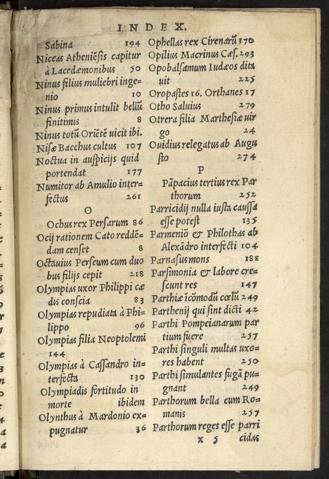 INDEX.
Sabina 194
Niceas Atheniẽsis capitur
à Lacedæmonibus 50
Ninus filius muliebri inge=
nio 10
Ninus primus intulit bellũ
finitimis 8
Ninus totũ Oriẽtẽ uicit ibi.
Nisæ Bacchus cultus 107
Noctua in auspicijs quid
portendat 177
Numitor ab Amulio inter=
fectus 261
O
Ochus rex Persarum 86
Ocij rationem Cato reddẽ=
dam censet 8
Octauius Perseum cum duo
bus filijs cepit 218
Olympias uxor Philippi cæ
dis conscia 83
Olympias repudiata à Phi=
lippo 96
Olympias filia Neoptolemi
144
Olympias à Cassandro in=
terfecta 130
Olympiadis fortitudo in
morte ibidem
Olynthus à Mardonio ex=
pugnatur 36
Ophellas rex Cirenarũ 170
Opilius Macrinus Cæs. 293
Opobalsamum Iudæos dita
uit 225
Oropastes 16. Orthanes 17
Otho Saluius 279
Otrera filia Marthesiæ uir
go 24
Ouidius relegatus ab Augu
sto 274
P
Pãpacius tertius rex Par
thorum 252
Parricidij nulla iusta caussa
esse potest 135
Parmeniõ & Philothas ab
Alexãdro interfecti 104
Parnasus mons 181
Parsimonia & labore cre=
scunt res 147
Parthiæ icõmodũ cœlũ 249
Parthenij qui sint dicti 42
Parthi Pompeianarum par
tium fuere 257
Parthi singuli multas uxo=
res habent 250
Parthi simulantes fugã pu=
gnant 249
Parthorum bella cum Ro=
manis 257
Parthorum reges esse parri
x 5 cidas